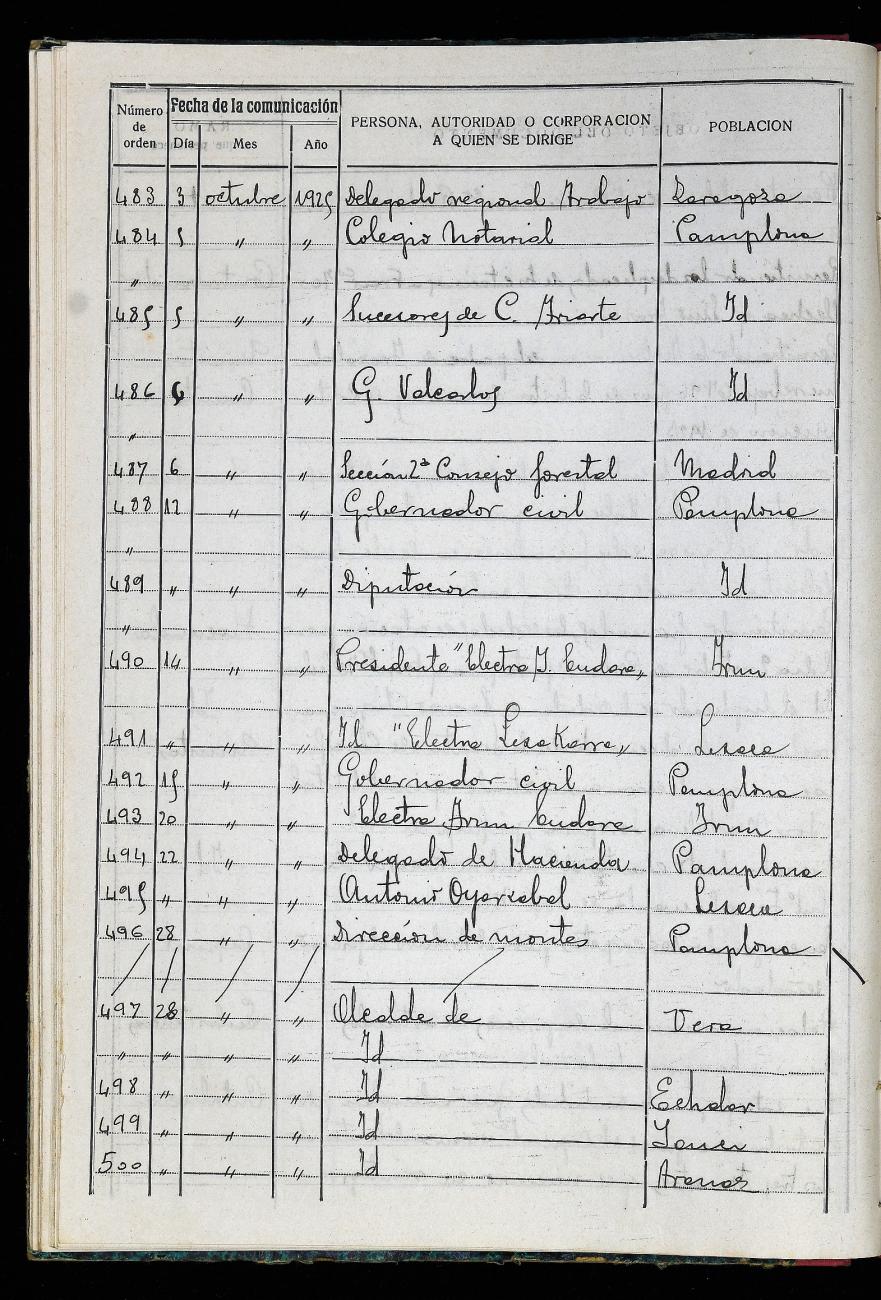 Número de orden Fecha de la comunicación PERSONA, AUTORIDAD O CORPORACION A QUIEN SE DIRIGE POBLACION
Día Mes Año
483 3 octubre 1925 Delegado regional Trabajo Zaragoza
484 5 " " Colegio Notarial Pamplona
"
485 5 " " Sucesores de C. Iriarte Id
486 6 " " G. Valcarlos Id
"
487 6 " " Sección 2ª Consejo forestal Madrid
488 12 " " Gobernador civil Pamplona
"
489 " " " Diputación Id
"
490 14 " " Presidente "Electra I. Endara" Irun
491 " " " Id "Electra Lesakarra" Lesaca
492 15 " " Gobernador civil Pamplona
493 20 " " Electra Irun Endara Irun
494 22 " " Delegado de Hacienda Pamplona
495 " " " Antonio Oyarzabal Lesaca
496 28 " " Dirección de montes Pamplona
497 28 " " Alcalde de Vera
" " " " Id
498 " " " Id Echalar
499 " " " Id Yanci
500 " " " Id Aranaz